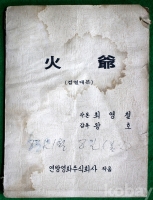 火爺
(검열대본)
각본 최영철
감독 왕호
연방영화주식회사 작품
kobay